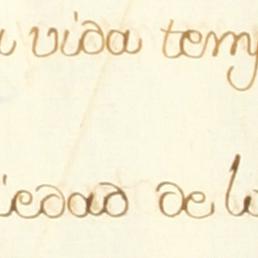 vida temp
iedad de lo